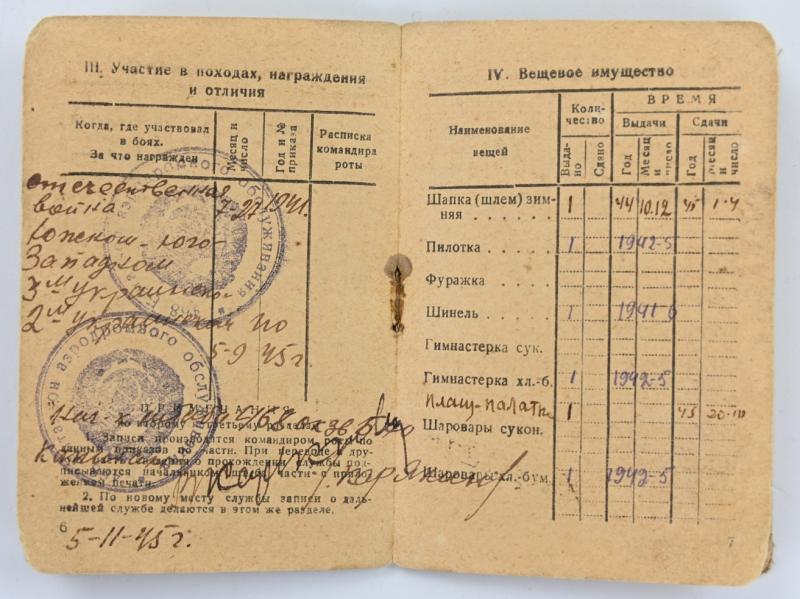 III. Участие в походах, награждения
и отличия
Когда, где участвовал
в боях.
За что награжден
Месяц и
число
Год и №
приказа
Расписка
командира
роты
отечественная
война 7-27 1941
Южном-юго-
Западном
3м украинском
2м украинском по
5-9 45 г
аэродромного обслуживания
аэродромного обслу
Примечания
по второму и третьему разделам
Записи производятся командиром роты по
данным приказов по части. При переводе в дру-
о прохождении службы под-
писываются начальником штаба части с прило-
жением печати.
2. По новому месту службы записи о даль-
нейшей службе делаются в этом же разделе.
6
5-11-45 г.
IV. Вещевое имущество
Наименование
вещей
Коли-
чество
ВРЕМЯ
Выдачи Сдачи
Выда-
но
Сдано
Год
Месяц
и
число
Год
Месяц
и
число
Шапка (шлем) зим-
няя . . . . . . 1 44 10.12 45 1-4
Пилотка . . . . . 1 1942-5
Фуражка . . . . .
Шинель . . . . . 1 1941-6
Гимнастерка сук.
Гимнастерка хл.-б. 1 1942-5
плащ-палатка 1 45 20-10
Шаровары сукон.
Шаровары хл.-бум. 1 1942-5
7